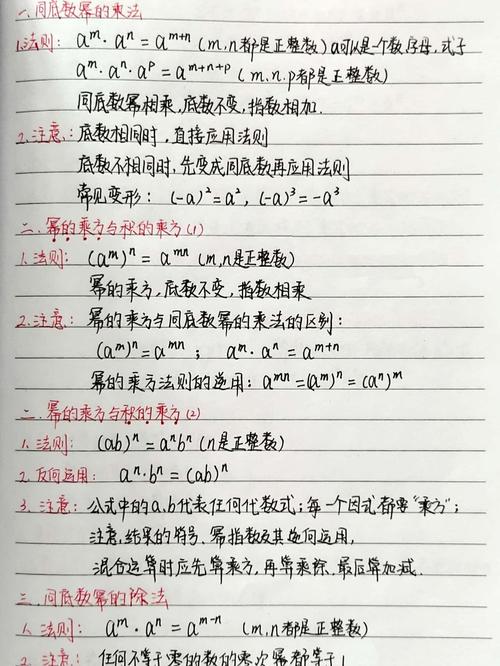 一、同底数幂的乘法
1.法则: aᵐ·aⁿ=aᵐ⁺ⁿ (m,n都是正整数) a可以是个数,字母,式子
aᵐ·aⁿ·aᵖ=aᵐ⁺ⁿ⁺ᵖ (m,n,p都是正整数)
同底数幂相乘,底数不变,指数相加.
2.注意: 底数相同时,直接应用法则
底数不相同时,先变成同底数再应用法则
常见变形: (-a)²=a², (-a)³=-a³
二、幂的乘方与积的乘方(1)
1.法则: (aᵐ)ⁿ=aᵐⁿ (m,n是正整数)
幂的乘方,底数不变,指数相乘
2.注意: 幂的乘方与同底数幂的乘法的区别:
(aᵐ)ⁿ=aᵐⁿ; aᵐ·aⁿ=aᵐ⁺ⁿ
幂的乘方法则的逆用: aᵐⁿ=(aᵐ)ⁿ=(aⁿ)ᵐ
二、幂的乘方与积的乘方(2)
1.法则: (ab)ⁿ=aⁿbⁿ (n是正整数)
2.反向运用: aⁿ·bⁿ=(ab)ⁿ
3.注意: 公式中的a,b代表任何代数式;每一个因式都要“乘方”;
注意,结果的符号、幂指数及其逆向运用,
混合运算时应先算乘方,再算乘除,最后算加减.
三、同底数幂的除法
1.法则: aᵐ·aⁿ=aᵐ⁻ⁿ (m,n都是正整数)
2.注意: 任何不等于零的数的零次幂都等于1